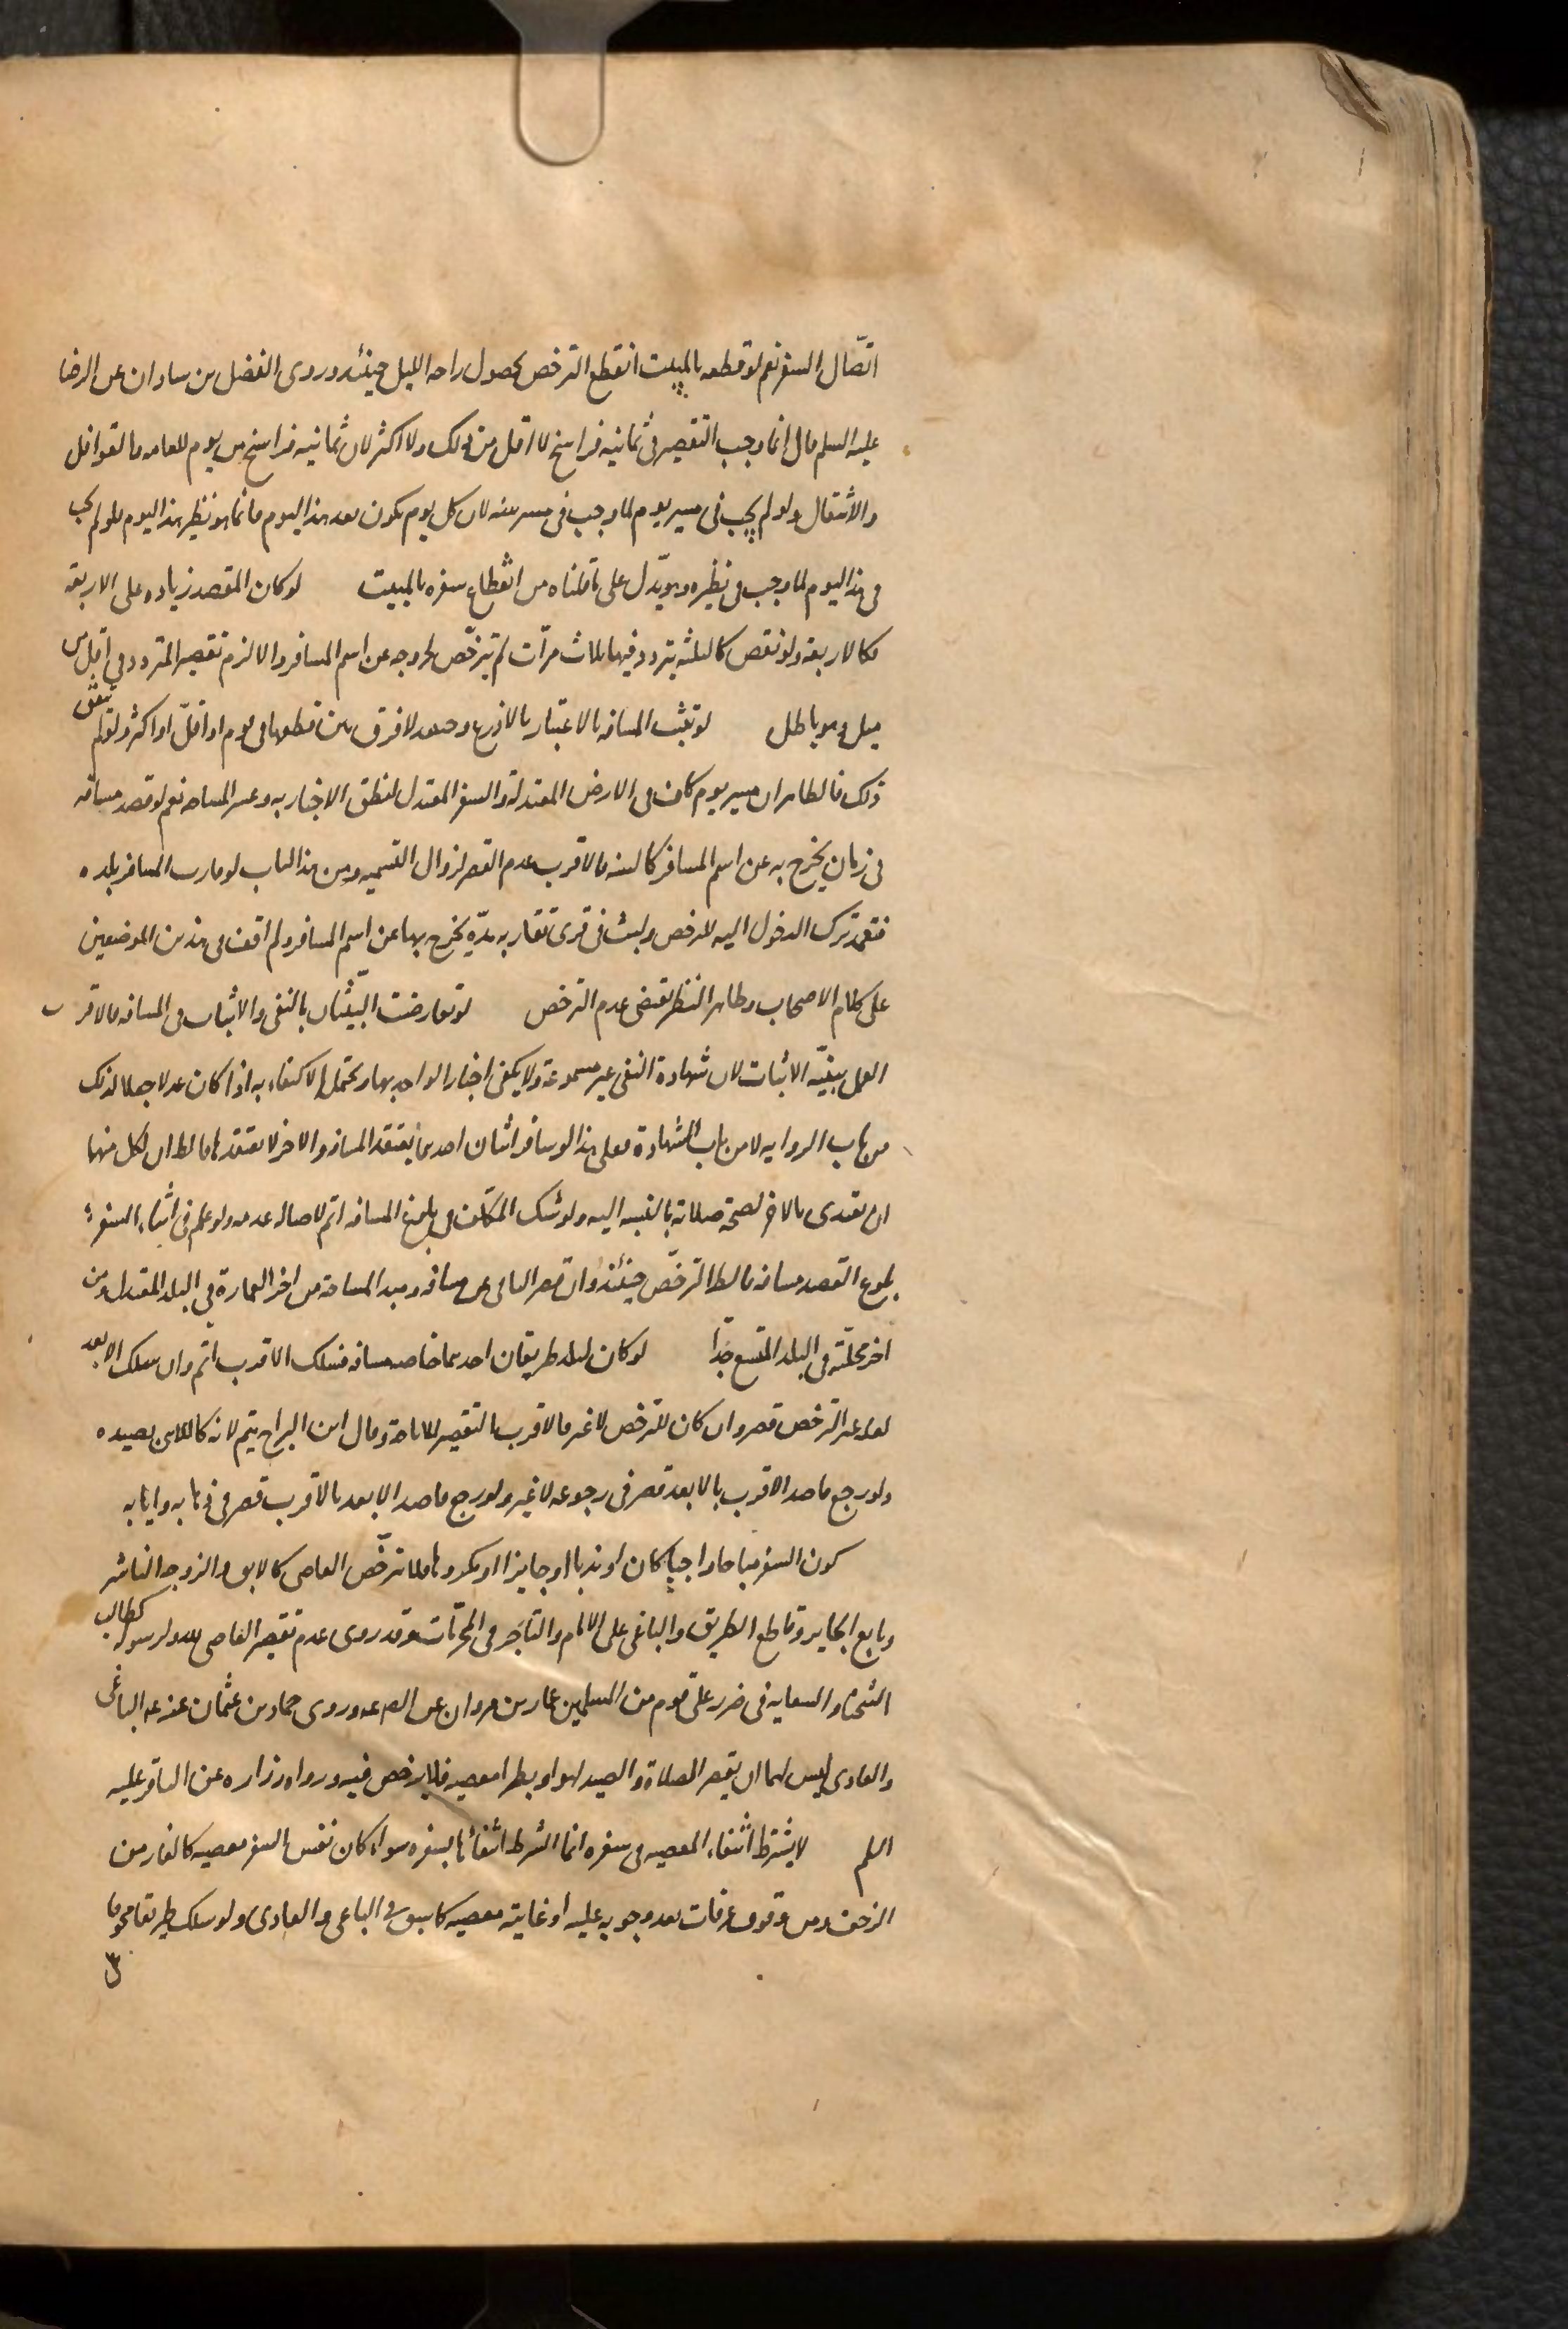 اتّصال السفر نعم لو قطعه بالمبيت انقطع الترخص لحصول راحه الليل حينئذ وروى الفضل بن شاذان عن الرضا
عليه السلم قال انما وجب التقصير فى ثمانيه فراسخ لا اقل من ذلك ولا اكثر لان ثمانيه فراسخ مسير يوم للعامه والقوافل
والاثقال ولو لم يجب فى مسير يوم لما وجب فى مسير سنه لان كل يوم يكون بعد هذا اليوم فانما هو نظير هذا اليوم فلو لم يجب
فى هذا اليوم لما وجب فى نظيره وهو يدّل على ما قلناه من انقطاع سفره بالمبيت لو كان المقصد زياده على الاربعه
فكالاربعه ولو نقص كالثلثه يتردد فيها ثلاث مرّات لم يترخّص لخروجه عن اسم المسافر والا لزم تقصير المتردد فى اقل من
ميل وهو باطل لو ثبتت المسافه بالاعتبار بالاذرع وحده لا فرق بين قطعها فى يوم او اقلّ او اكثر ولو لم يتفق
ذلك فالظاهران مسير يوم كاف فى الارض المعتدله والسير المعتدل لنطق الاخبار به وعسر المساحه نعم لو قصد مسافه
فى زمان يخرج به عن اسم المسافر كالسنه فالاقرب عدم القصر لزوال التسميه ومن هذا الباب لو قارب المسافر بلده
فتعمد ترك الدخول اليه للترخص ولبث فى قرى تقاربه مدّة يخرج بها عن اسم المسافر ولم اقف فى هذين الموضعين
على كلام الاصحاب وظاهر النظر يقتضى عدم الترخص لو تعارضت البيّنتان بالنفى والاثبات فى المسافه فالاقرب
العمل ببيّنه الاثبات لان شهادة النفى غير مسموعة ولا يكفى اخبار الواحد بها ويحتمل الاكتفاء به اذا كان عدلا جعلا لذلك
من باب الروايه لا من باب الشهادة فعلى هذا لو سافر اثنان احدهما يعتقد المسافه والاخر لا يعتقدها فالظ ان لكل منهما
ان يقتدى بالاخر لصحة صلاته بالنسبه اليه ولو شك المكلّف فى بلوغ المسافه اتم لاصاله عدمه ولو علم فى اثناء السفر
بلوغ المقصد مسافه فالظ الترخّص حينئذ وان قصر الباقى عن مسافه ومبدا المسافه من اخر العمارة فى البلد المعتدل ومن
اخر محلّته فى البلد المتسع جدّا لو كان لبلد طريقان احدهما خاصه مسافه فسلك الاقرب اتم وان سلك الابعد
لعله غير الترخص قصر وان كان للترخص لا غير فالاقرب التقصير للاباحة وقال ابن البراج يتم لانه كاللاهى بصيده
ولو رجع قاصد الاقرب بالابعد قصر فى رجوعه لا غير ولو رجع قاصد الابعد بالاقرب قصر فى ذهابه وايابه
كون السفر مباحا واجبا كان او ندبا او جايزا او مكروها فلا يترخّص العاصى كالابق والزوجه الناشز
وتابع الجاير وقاطع الطريق والباغى على الامام والتاجر فى المحرّمات وقد روى عدم تقصير العاصى لله ولرسوله كطالب
الشحناء والسعايه فى ضرر على قوم من المسلمين عمار بن مروان عن الص عه وروى حماد بن عثمان عنه عه الباغى
والعادى ليس لهما ان يقصر الصلاة والصيد لهوا وبطرا معصيه فلا يرخص فيه ورواه زراره عن الباقر عليه
السلم لا يشترط انتفاء المعصيه فى سفره انما الشرط انتفائها بسفره سواء كان نفس السفر معصيه كالفار من
الزحف ومن وقوف عرفات بعد وجوبه عليه او غايته معصيه كما سبق فى الباغى والعادى ولو سلك طريقا مخوفا